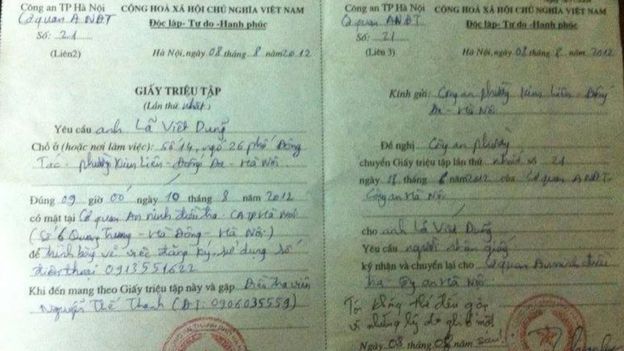 Công an TP Hà Nội
CỘNG HOÀ XÃ HỘI CHỦ NGHĨA VIỆT NAM
Cơ quan ANĐT
Độc lập- Tự do -Hạnh phúc
Số: 21
(Liên2)
Hà Nội, ngày 08 tháng 8 năm 2012
GIẤY TRIỆU TẬP
(Lần thứ nhất)
Yêu cầu anh Lã Việt Dũng
Chỗ ở (hoặc nơi làm việc): Số 14, ngõ 26 phố Đông
Tác - phường Kim Liên - Đống Đa - Hà Nội
Đúng 09 giờ 00 ngày 10 tháng 8 năm 2012
có mặt tại Cơ quan An ninh điều tra CATP Hà Nội
(Số 6 Quang Trung - Hà Đông - Hà Nội)
để trình bày về việc đăng ký, sử dụng số
điện thoại 0913551622
Khi đến mang theo Giấy triệu tập này và gặp Điều tra viên
Nguyễn Thế Thanh (ĐT: 0906035559)
Công an TP Hà Nội
CỘNG HOÀ XÃ HỘI CHỦ NGHĨA VIỆT NAM
Cơ quan ANĐT
Độc lập- Tự do -Hạnh phúc
Số: 21
(Liên 3)
Hà Nội, ngày 08 tháng 8 năm 2012
Kính gửi: Công an phường Kim Liên - Đống
Đa - Hà Nội
Đề nghị Công an phường
chuyển Giấy triệu tập lần thứ nhất số 21
ngày tháng 8 năm 2012 của Cơ quan ANĐT
Công an Hà Nội
cho anh Lã Việt Dũng
Yêu cầu người nhận giấy
ký nhận và chuyển lại cho Cơ quan An ninh điều
tra Công an Hà Nội
Tôi không thể đến gặp
vì những lý do ghi ở mặt sau!
Ngày 08 tháng 08 năm